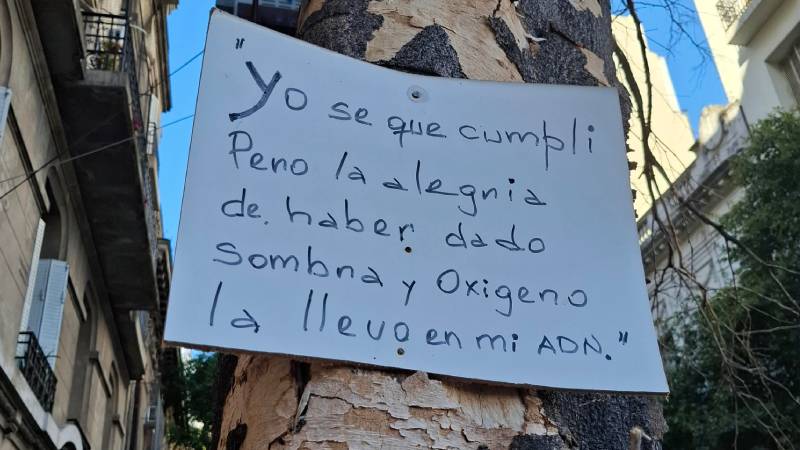 "Yo se que cumpli
Pero la alegria
de. haber dado
Sombra y Oxigeno
la llevo en mi ADN."